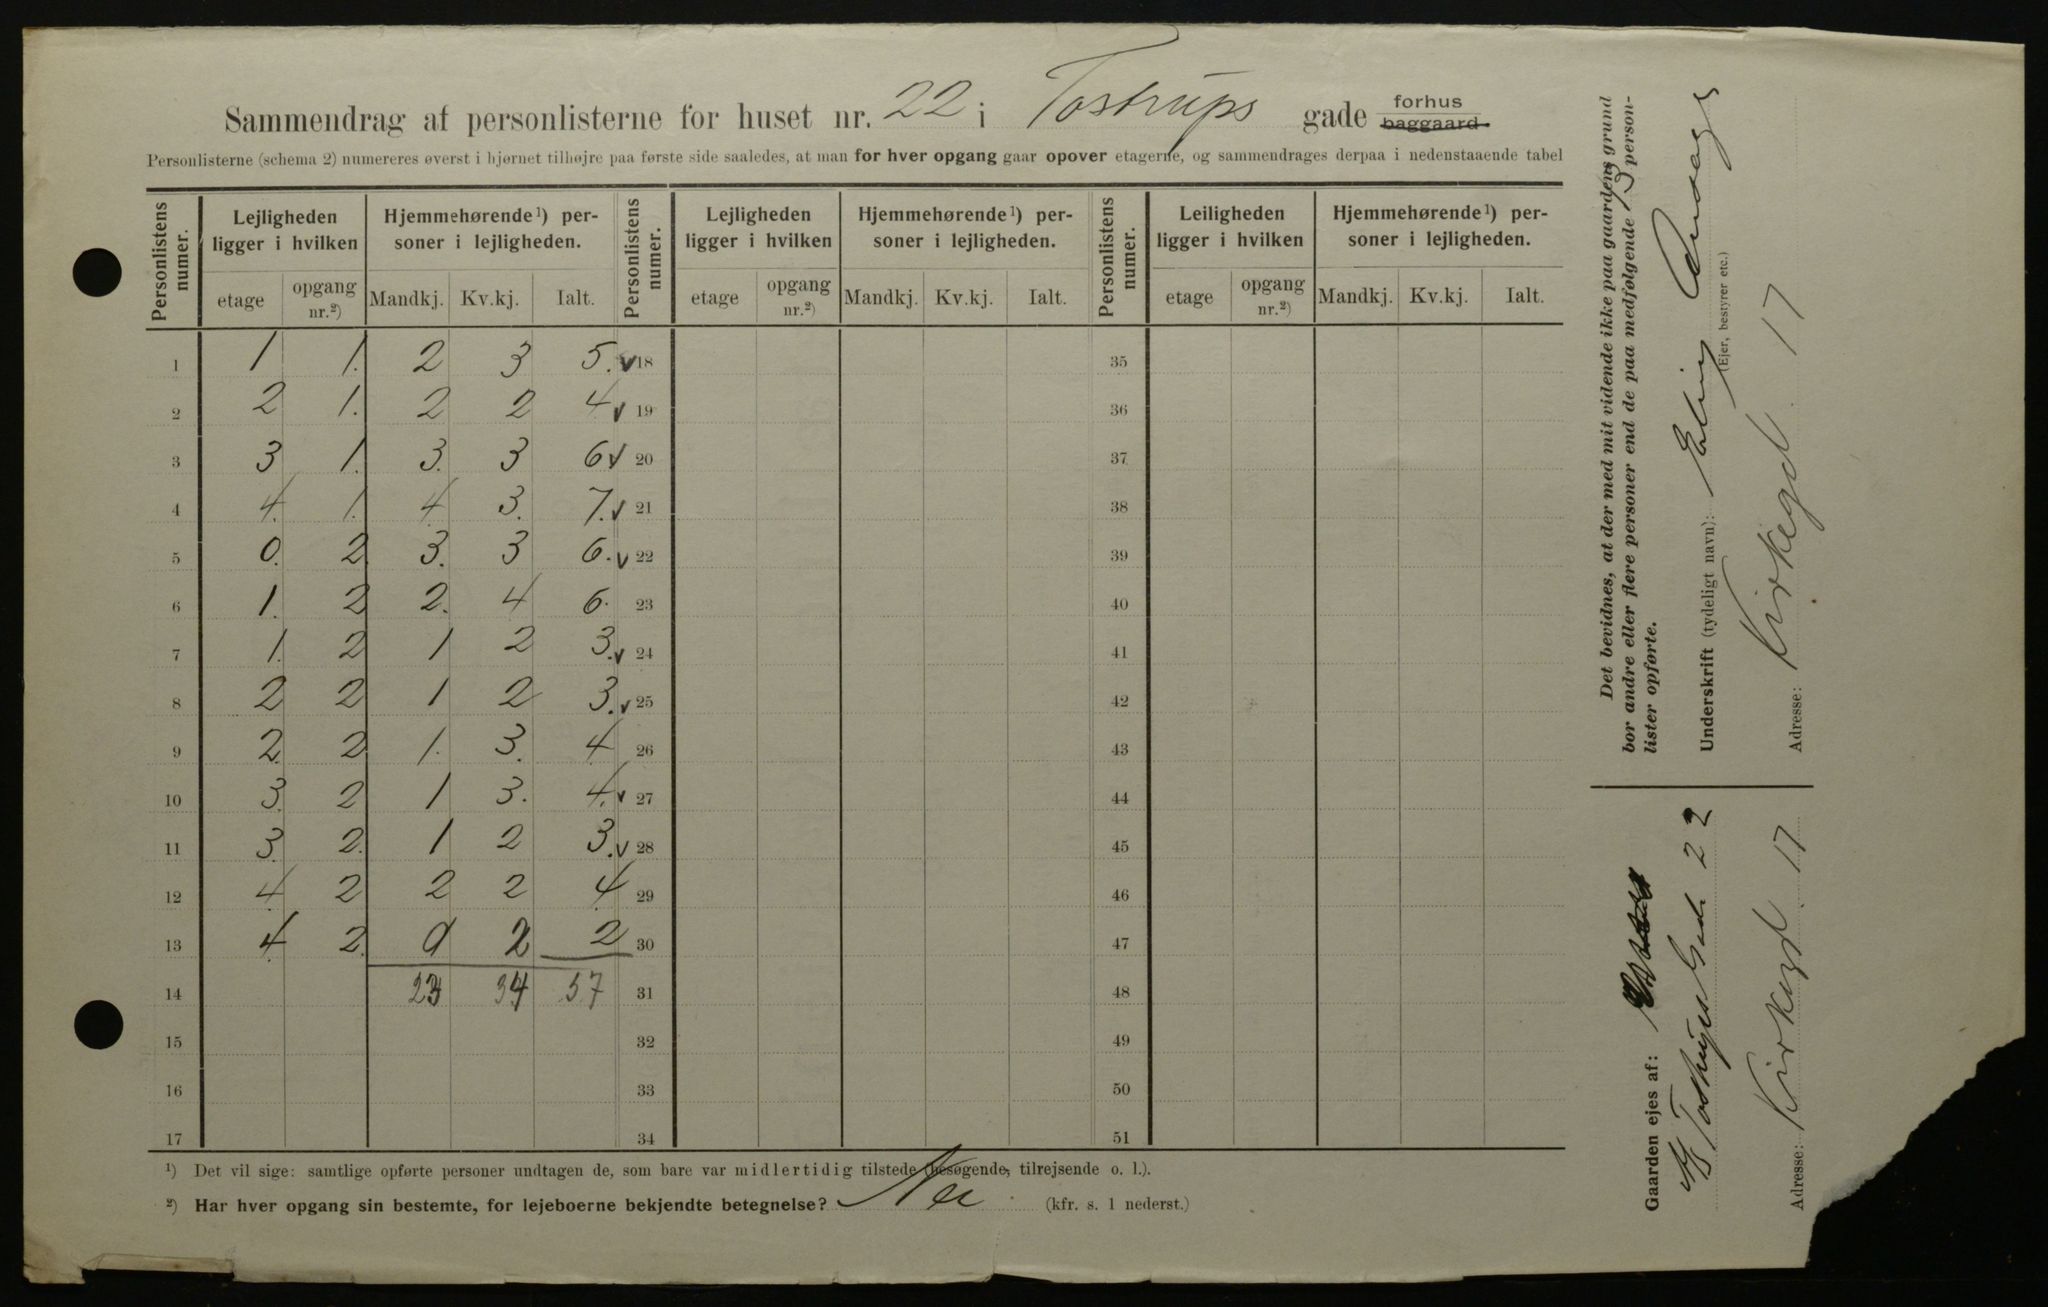 Sammendrag af personlisterne for huset nr. 22 i Tostrups gade forhus baggaard
Personlisterne (schema 2) numereres øverst i hjørnet tilhøjre paa første side saaledes, at man for hver opgang gaar opover etagerne, og sammendrages derpaa i nedenstaaende tabel
Personlistens numer. Lejligheden ligger i hvilken Hjemmehørende¹) personer i lejligheden. Personlistens numer. Lejligheden ligger i hvilken Hjemmehørende¹) personer i lejligheden. Personlistens numer. Leiligheden ligger i hvilken Hjemmehørende¹) personer i lejligheden.
etage opgang nr.²) Mandkj. Kv.kj. Ialt. etage opgang nr.²) Mandkj. Kv.kj. Ialt. etage opgang nr.²) Mandkj. Kv.kj. Ialt.
1 1 1. 2 3 5. v 18 35
2 2 1. 2 2 4 v 19 36
3 3 1. 3. 3 6 v 20 37
4 4. 1. 4 3. 7. v 21 38
5 0. 2 3. 3 6. v 22 39
6 1. 2 2. 4 6. 23 40
7 1. 2 1 2 3. v 24 41
8 2 2 1 2 3. v 25 42
9 2. 2 1. 3. 4 26 43
10 3. 2 1 3. 4. v 27 44
11 3. 2. 1 2 3. v 28 45
12 4. 2 2 2 4 29 46
13 4. 2. 0 2 2 30 47
14 23 34 57 31 48
15 32 49
16 33 50
17 34 51
¹) Det vil sige: samtlige opførte personer undtagen de, som bare var midlertidig tilstede (besøgende, tilrejsende o. l.).
²) Har hver opgang sin bestemte, for lejeboerne bekjendte betegnelse? Nei (kfr. s. 1 nederst.)
Det bevidnes, at der med mit vidende ikke paa gaardens grund
bor andre eller flere personer end de paa medfølgende 13 person-
lister opførte.
Underskrift (tydeligt navn):
(Ejer, bestyrer etc.)
Adresse: Kirkegt 17
Gaarden ejes af:
Tostrups Gade 22
Adresse: Kirkegt 17